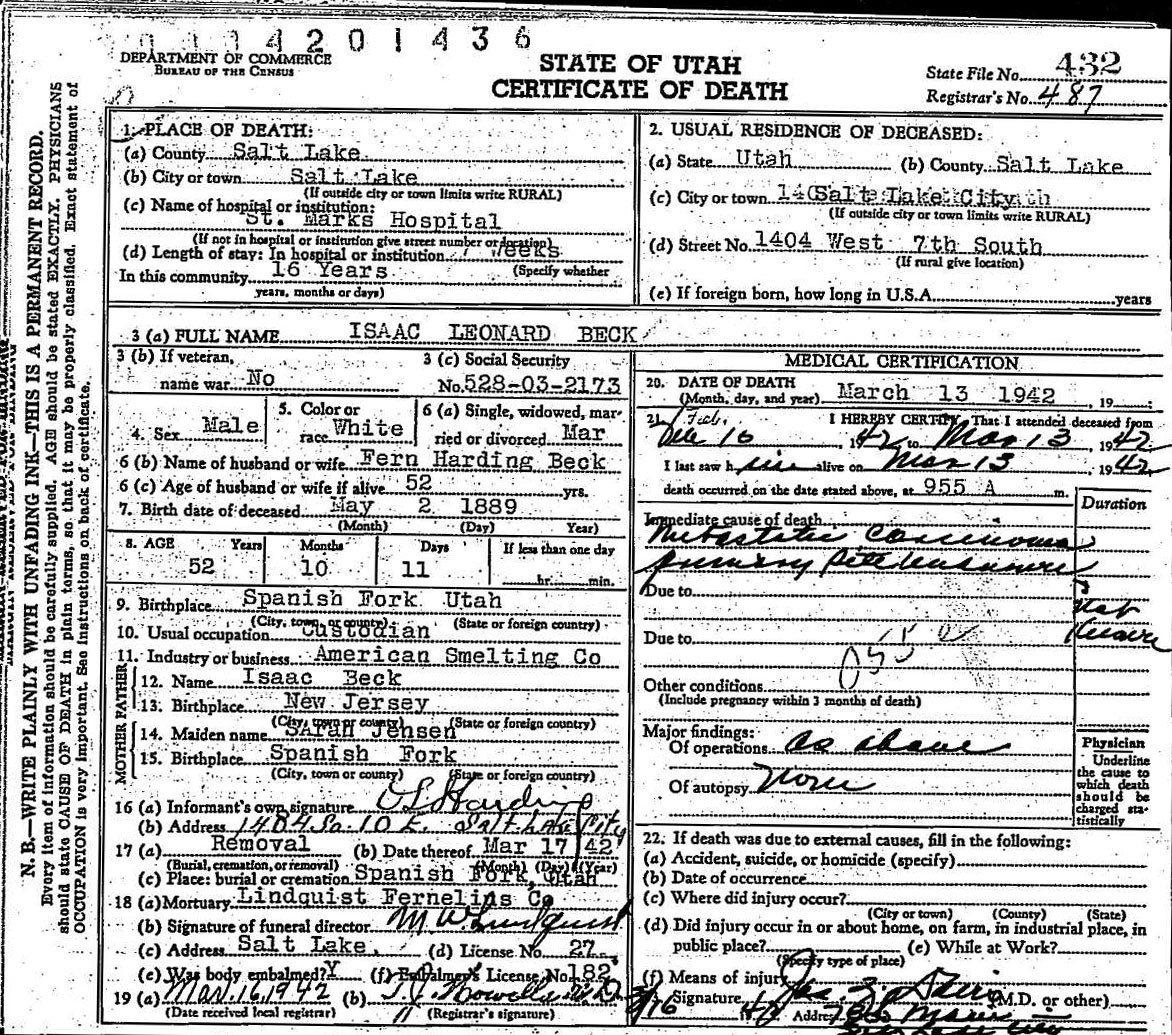 0 1 1 4 2 0 1 4 3 6
DEPARTMENT OF COMMERCE
BUREAU OF THE CENSUS
STATE OF UTAH
CERTIFICATE OF DEATH
State File No. 432
Registrar's No. 487
N. B.—WRITE PLAINLY WITH UNFADING INK—THIS IS A PERMANENT RECORD.
Every item of information should be carefully supplied. AGE should be stated EXACTLY. PHYSICIANS
should state CAUSE OF DEATH in plain terms, so that it may be properly classified. Exact statement of
OCCUPATION is very important. See instructions on back of certificate.
1. PLACE OF DEATH:
(a) County Salt Lake
(b) City or town Salt Lake
(If outside city or town limits write RURAL)
(c) Name of hospital or institution:
St. Marks Hospital
(If not in hospital or institution give street number or location)
(d) Length of stay: In hospital or institution Weeks
(Specify whether
In this community 16 Years
years, months or days)
2. USUAL RESIDENCE OF DECEASED:
(a) State Utah (b) County Salt Lake
(c) City or town Salt Lake City
(If outside city or town limits write RURAL)
(d) Street No. 1404 West 7th South
(If rural give location)
(e) If foreign born, how long in U.S.A. years
3 (a) FULL NAME ISAAC LEONARD BECK
3 (b) If veteran,
name war No
3 (c) Social Security
No. 528-03-2173
4. Sex Male
5. Color or
race White
6 (a) Single, widowed, mar-
ried or divorced Mar
6 (b) Name of husband or wife Fern Harding Beck
6 (c) Age of husband or wife if alive 52 yrs.
7. Birth date of deceased May 2 1889
(Month) (Day) Year)
8. AGE Years Months Days If less than one day
52 10 11 hr. min.
9. Birthplace Spanish Fork Utah
(City, town, or county) (State or foreign country)
10. Usual occupation Custodian
11. Industry or business American Smelting Co
FATHER
12. Name Isaac Beck
13. Birthplace New Jersey
(City, town or county) (State or foreign country)
MOTHER
14. Maiden name SArah Jensen
15. Birthplace Spanish Fork
(City, town or county) (State or foreign country)
16 (a) Informant's own signature Harding
(b) Address 1484 So. 10 E. Salt Lake City
17 (a) Removal (b) Date thereof Mar 17 42
(Burial, cremation, or removal) (Month) (Day) (Year)
(c) Place: burial or cremation Spanish Fork, Utah
18 (a) Mortuary Lindquist Fernelius Co
(b) Signature of funeral director M W Lindquist
(c) Address Salt Lake, (d) License No. 27
(e) Was body embalmed? Y (f) Embalmer's License No. 182
19 (a) Mar. 16, 1942 (b) T. J. Howells M.D.
(Date received local registrar) (Registrar's signature)
MEDICAL CERTIFICATION
20. DATE OF DEATH
(Month, day, and year) March 13 1942, 19
21. I HEREBY CERTIFY, That I attended deceased from
Feb. 10, 1942 to Mar 13, 1942
I last saw h im alive on Mar 13, 1942
death occurred on the date stated above, at 955 A m.
Duration
Immediate cause of death
Metastatic Carcinoma
primary
Due to
Not
Known
Due to
Other conditions
(Include pregnancy within 3 months of death)
Major findings:
Of operations as above
Of autopsy None
Physician
Underline
the cause to
which death
should be
charged sta-
tistically
22. If death was due to external causes, fill in the following:
(a) Accident, suicide, or homicide (specify)
(b) Date of occurrence
(c) Where did injury occur?
(City or town) (County) (State)
(d) Did injury occur in or about home, on farm, in industrial place, in
public place? (e) While at Work?
(Specify type of place)
(f) Means of injury
3/16 42 Signature Jas. (M.D. or other)
Address